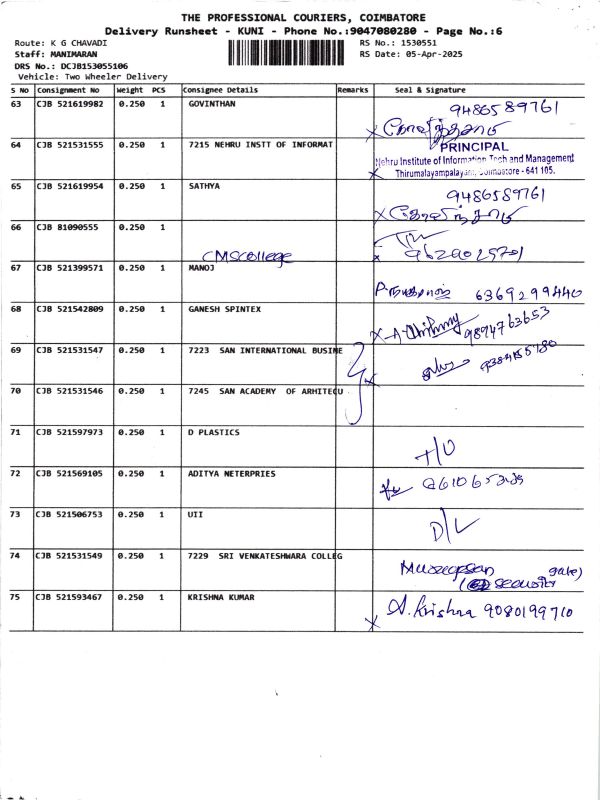 THE PROFESSIONAL COURIERS, COIMBATORE
Delivery Runsheet - KUNI - Phone No.:9047080280 - Page No.:6
Route: K G CHAVADI RS No.: 1530551
Staff: MANIMARAN RS Date: 05-Apr-2025
DRS No.: DCJB153055106
Vehicle: Two Wheeler Delivery
S No Consignment No Weight PCS Consignee Details Remarks Seal & Signature
63 CJB 521619982 0.250 1 GOVINTHAN 9486589761
64 CJB 521531555 0.250 1 7215 NEHRU INSTT OF INFORMAT PRINCIPAL
Nehru Institute of Information Tech and Management
Thirumalayampalayam, Coimbatore - 641 105.
65 CJB 521619954 0.250 1 SATHYA 9486589761
66 CJB 81090555 0.250 1
CMS College
67 CJB 521399571 0.250 1 MANOJ 6369299440
68 CJB 521542809 0.250 1 GANESH SPINTEX 9894763653
69 CJB 521531547 0.250 1 7223 SAN INTERNATIONAL BUSINE
70 CJB 521531546 0.250 1 7245 SAN ACADEMY OF ARHITECU
71 CJB 521597973 0.250 1 D PLASTICS
72 CJB 521569105 0.250 1 ADITYA NETERPRIES
73 CJB 521506753 0.250 1 UII D/L
74 CJB 521531549 0.250 1 7229 SRI VENKATESHWARA COLLEG
75 CJB 521593467 0.250 1 KRISHNA KUMAR A. Krishna 9080199710